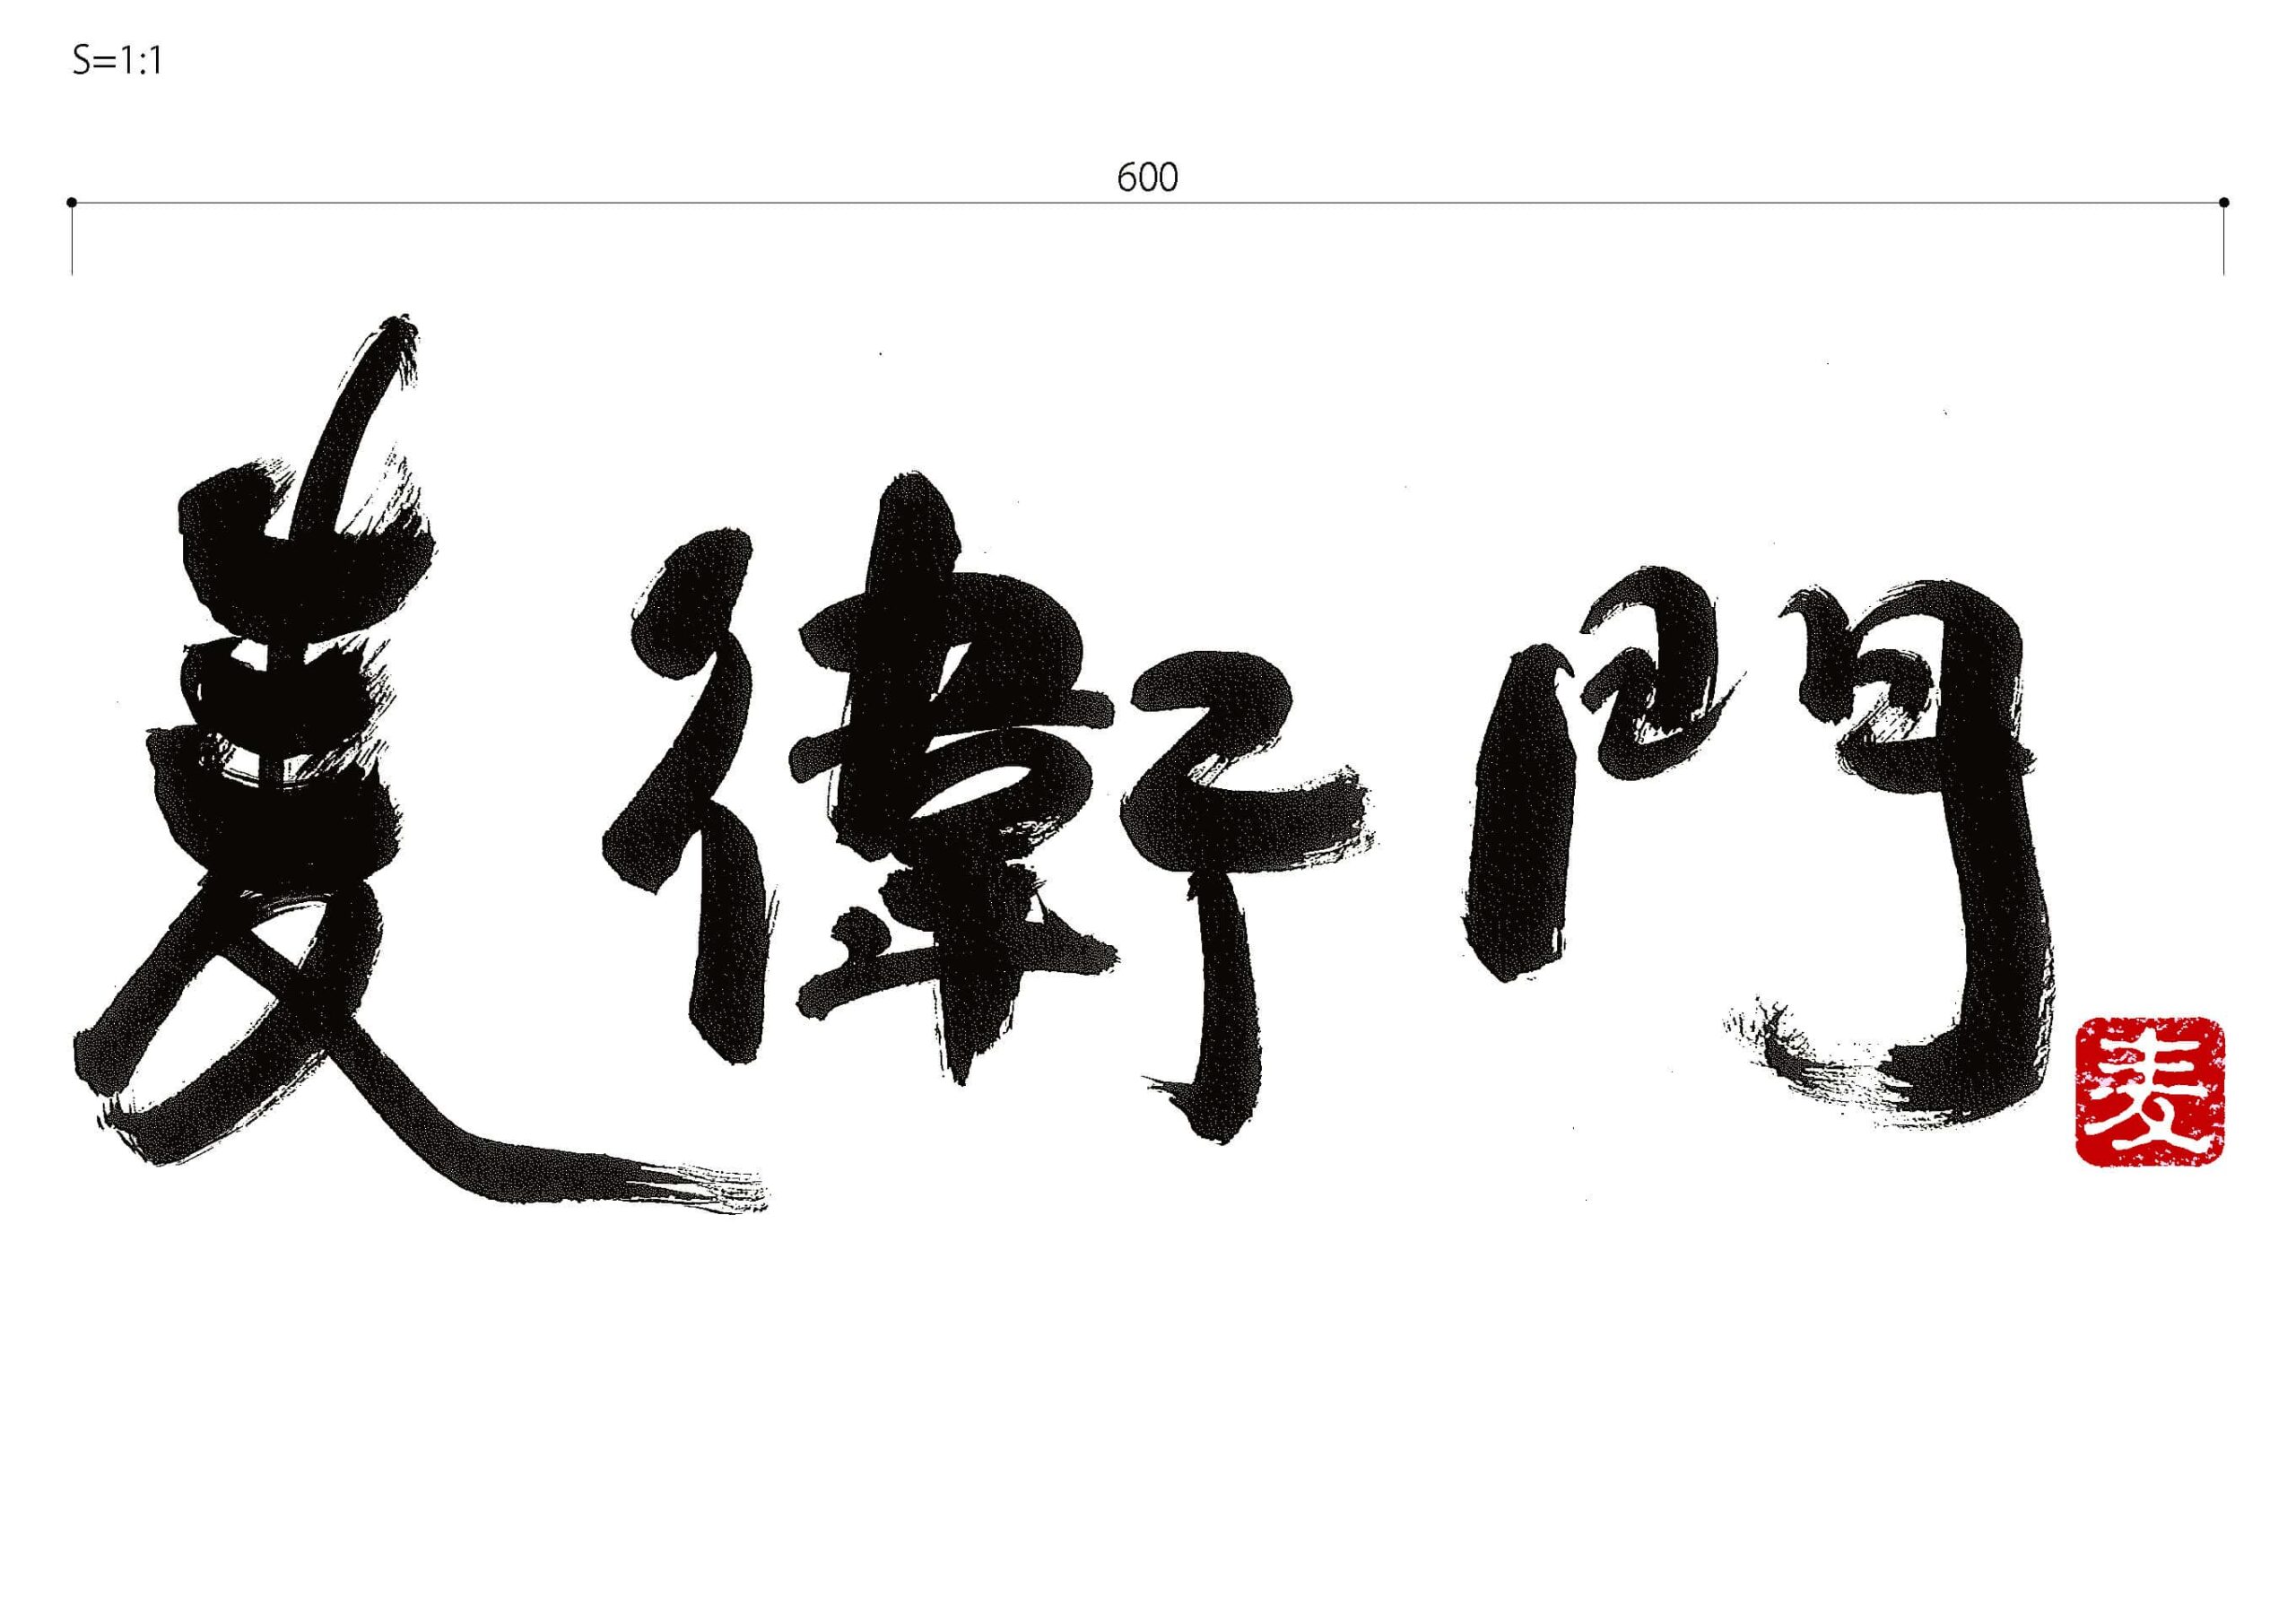 S=1:1
600
麦衛門
麦